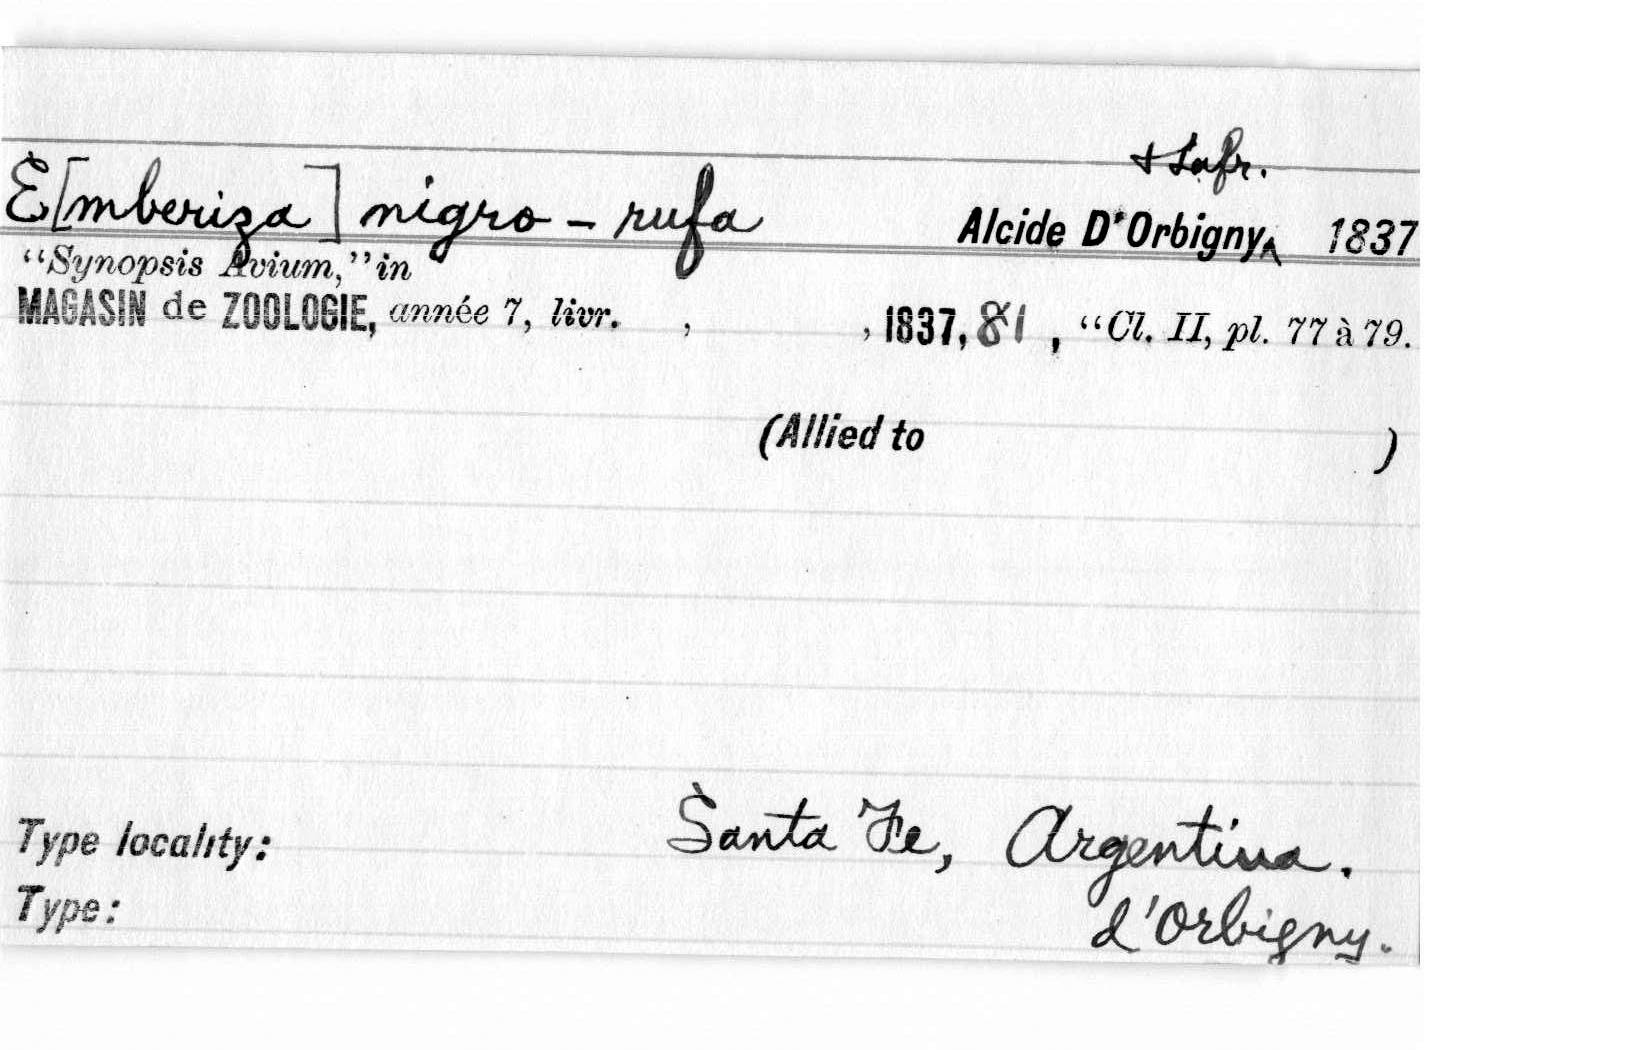 & Lafr.
E[mberiza] nigro-rufa Alcide D'Orbigny‸ 1837
“Synopsis Avium,” in
MAGASIN de ZOOLOGIE, année 7, livr. , , 1837, 81 , “Cl. II, pl. 77 à 79.
(Allied to )
Type locality: Santa Fe, Argentina.
Type: d'Orbigny.